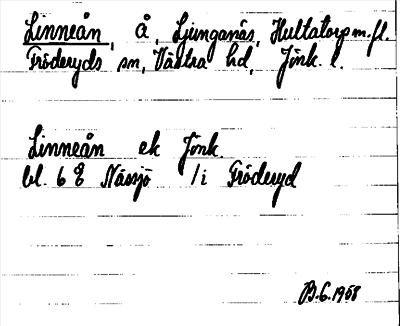 Linneån, å, Ljunganäs, Hultatorp m.fl.
Fröderyds sn, Västra hd, Jönk. l.
Linneån ek Jönk
bl. 6 Ö Nässjö 1 i Fröderyd
B.G. 1958